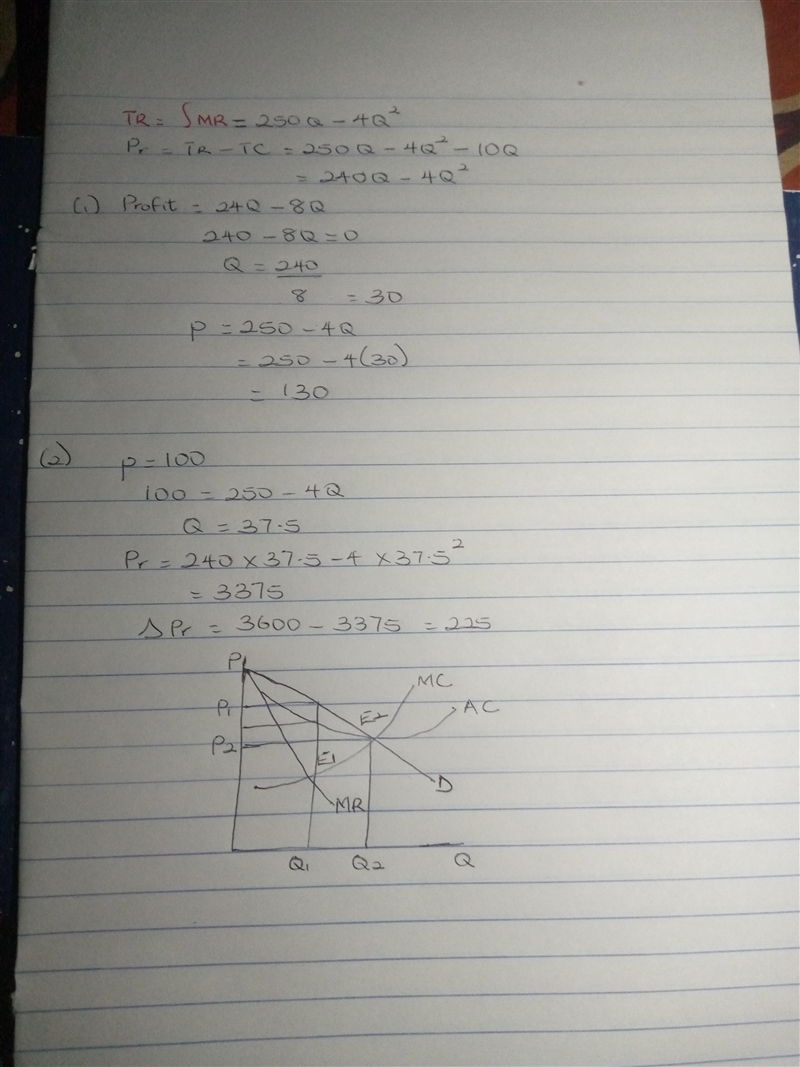 TR = ∫MR = 250Q - 4Q²
Pr = TR - TC = 250Q - 4Q² - 10Q
= 240Q - 4Q²
(1) Profit = 24Q - 8Q
240 - 8Q = 0
Q = 240
8 = 30
P = 250 - 4Q
= 250 - 4(30)
= 130
(2) P = 100
100 = 250 - 4Q
Q = 37.5
Pr = 240 × 37.5 - 4 × 37.5²
= 3375
△Pr = 3600 - 3375 = 225
P
MC
P1
E2
AC
P2
E1
D
MR
Q1 Q2 Q